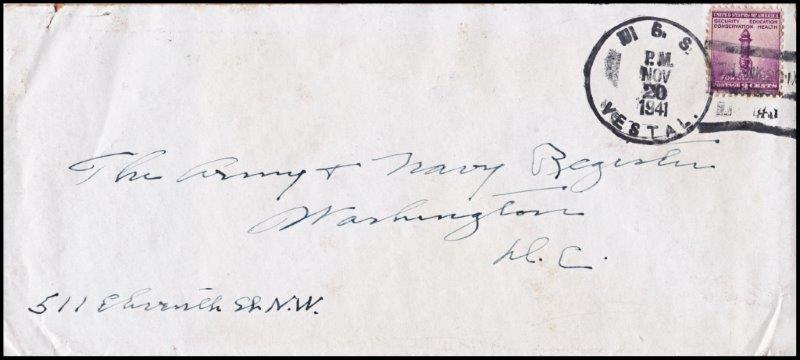 U. S. S.
P.M.
NOV
20
1941
VESTAL.
UNITED STATES OF AMERICA
SECURITY EDUCATION
CONSERVATION HEALTH
FOR DEFENSE
POSTAGE 3 CENTS
The Army & Navy Register
Washington
D. C.
511 Eleventh St. N.W.